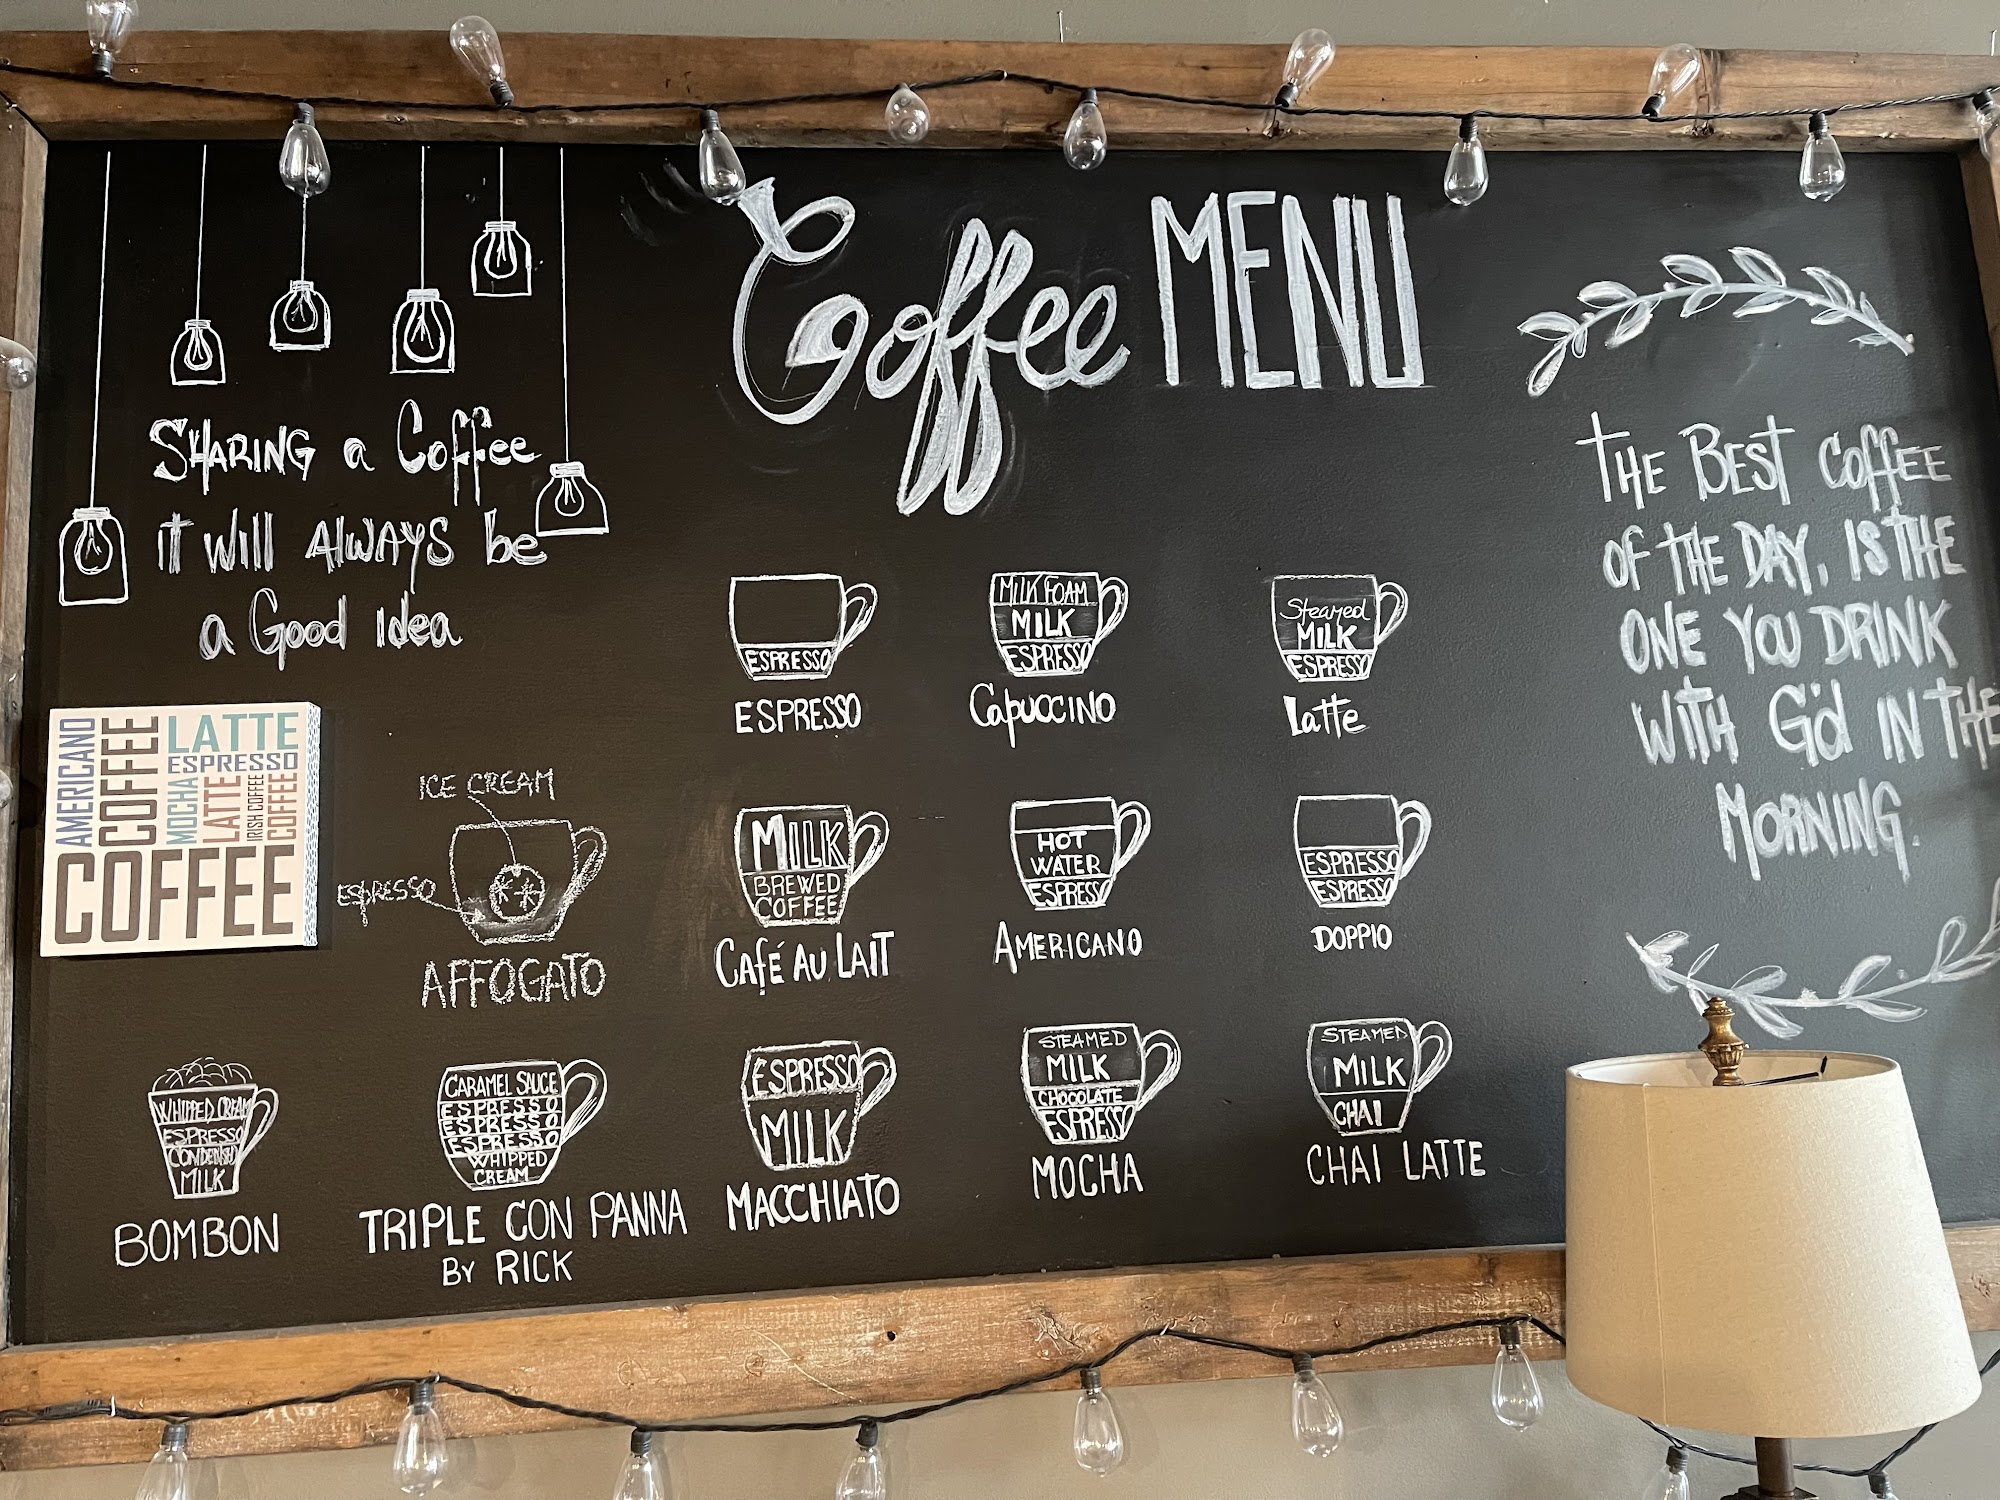 Coffee MENU
SHARING a Coffee
it will ALWAYS be
a Good idea
THE BEST COFFEE
OF THE DAY, IS THE
ONE YOU DRINK
WITH G'd IN THE
MORNING.
AMERICANO
COFFEE
LATTE
ESPRESSO
MOCHA
LATTE
IRISH COFFEE
COFFEE
COFFEE
ESPRESSO
ESPRESSO
MILK FOAM
MILK
ESPRESSO
Capuccino
Steamed
MILK
ESPRESSO
Latte
ICE CREAM
ESPRESSO
AFFOGATO
MILK
BREWED
COFFEE
Café AU LAIT
HOT
WATER
ESPRESSO
AMERICANO
ESPRESSO
ESPRESSO
DOPPIO
WHIPPED CREAM
ESPRESSO
CONDENSED
MILK
BOMBON
CARAMEL SAUCE
ESPRESSO
ESPRESSO
ESPRESSO
WHIPPED
CREAM
TRIPLE CON PANNA
BY RICK
ESPRESSO
MILK
MACCHIATO
STEAMED
MILK
CHOCOLATE
ESPRESSO
MOCHA
STEAMED
MILK
CHAI
CHAI LATTE